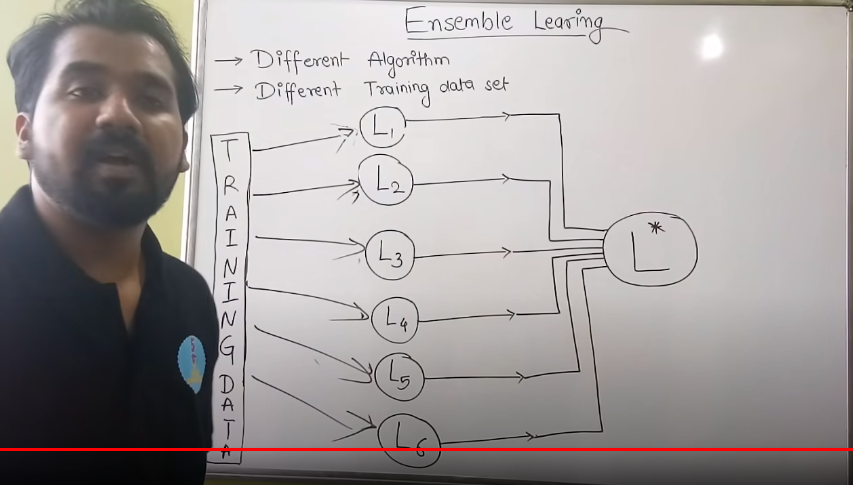 Ensemble Learing
→ Different Algorithm
→ Different Training data set
TRAINING DATA
L1
L2
L3
L4
L5
L6
L*